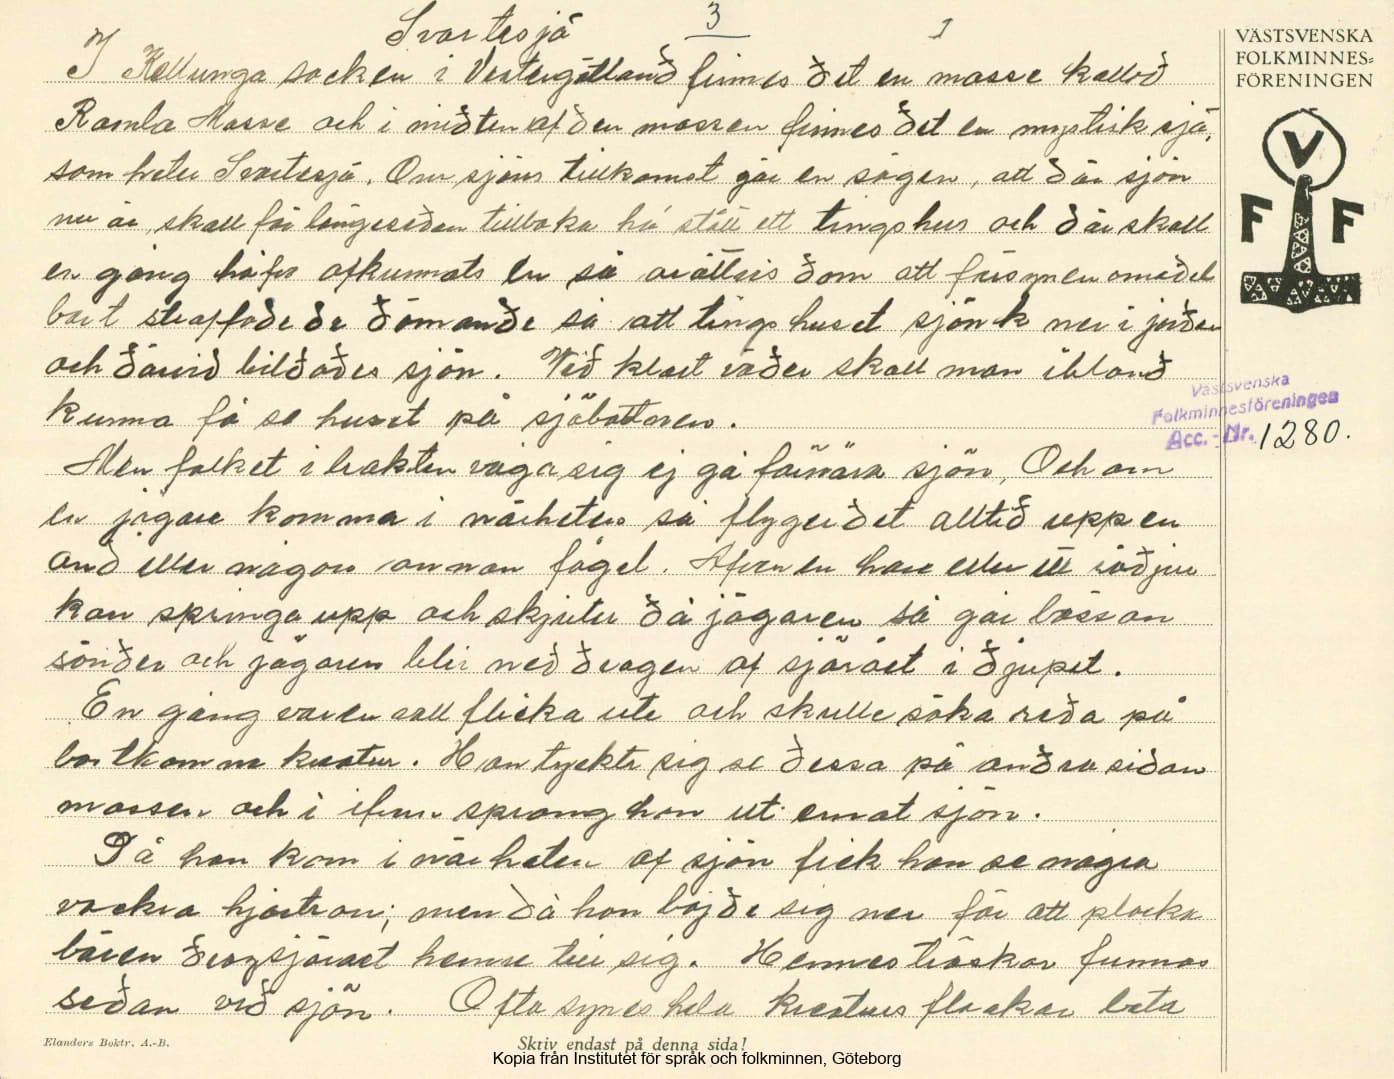 3
1
Svartesjö
I Kellunga socken i Vestergötland finnes det en mosse kallad
Ramla Mosse och i midten af den mossen finnes det en mystisk sjö,
som heter Svartesjö. Om sjöns tillkomst går en sägen, att där sjön
nu är, skall för längesedan tillbaka ha stått ett tingshus och där skall
en gång hafva afkunnats en så orättvis dom att försynen omedel
bart straffade de dömande så att tingshuset sjönk ner i jorden
och därvid bildades sjön. Vid klart väder skall man ibland
kunna få se huset på sjöbottnen.
Men folket i trakten våga sig ej gå för nära sjön, Och om
en jägare komma i närheten så flyger det alltid upp en
and eller någon annan fågel. Äfven en hare eller ett rådjur
kan springa upp och skjuter då jägaren så går bössan
sönder och jägaren blir neddragen af sjörået i djupet.
En gång var en vall flicka ute och skulle söka reda på
bortkomna kreatur. Hon tyckte sig se dessa på andra sidan
mossen och i ifvern sprang hon ut emot sjön.
Då hon kom i närheten af sjön fick hon se några
vackra hjortron; men då hon böjde sig ner för att plocka
bären drog sjörået henne till sig. Hennes träskor funnos
sedan vid sjön. Ofta synes hela kreaturs flockar beta
VÄSTSVENSKA
FOLKMINNES=
FÖRENINGEN
V
F F
Västsvenska
Folkminnesföreningen
Acc.-Nr. 1280.
Elanders Boktr. A.-B.
Skriv endast på denna sida!
Kopia från Institutet för språk och folkminnen, Göteborg